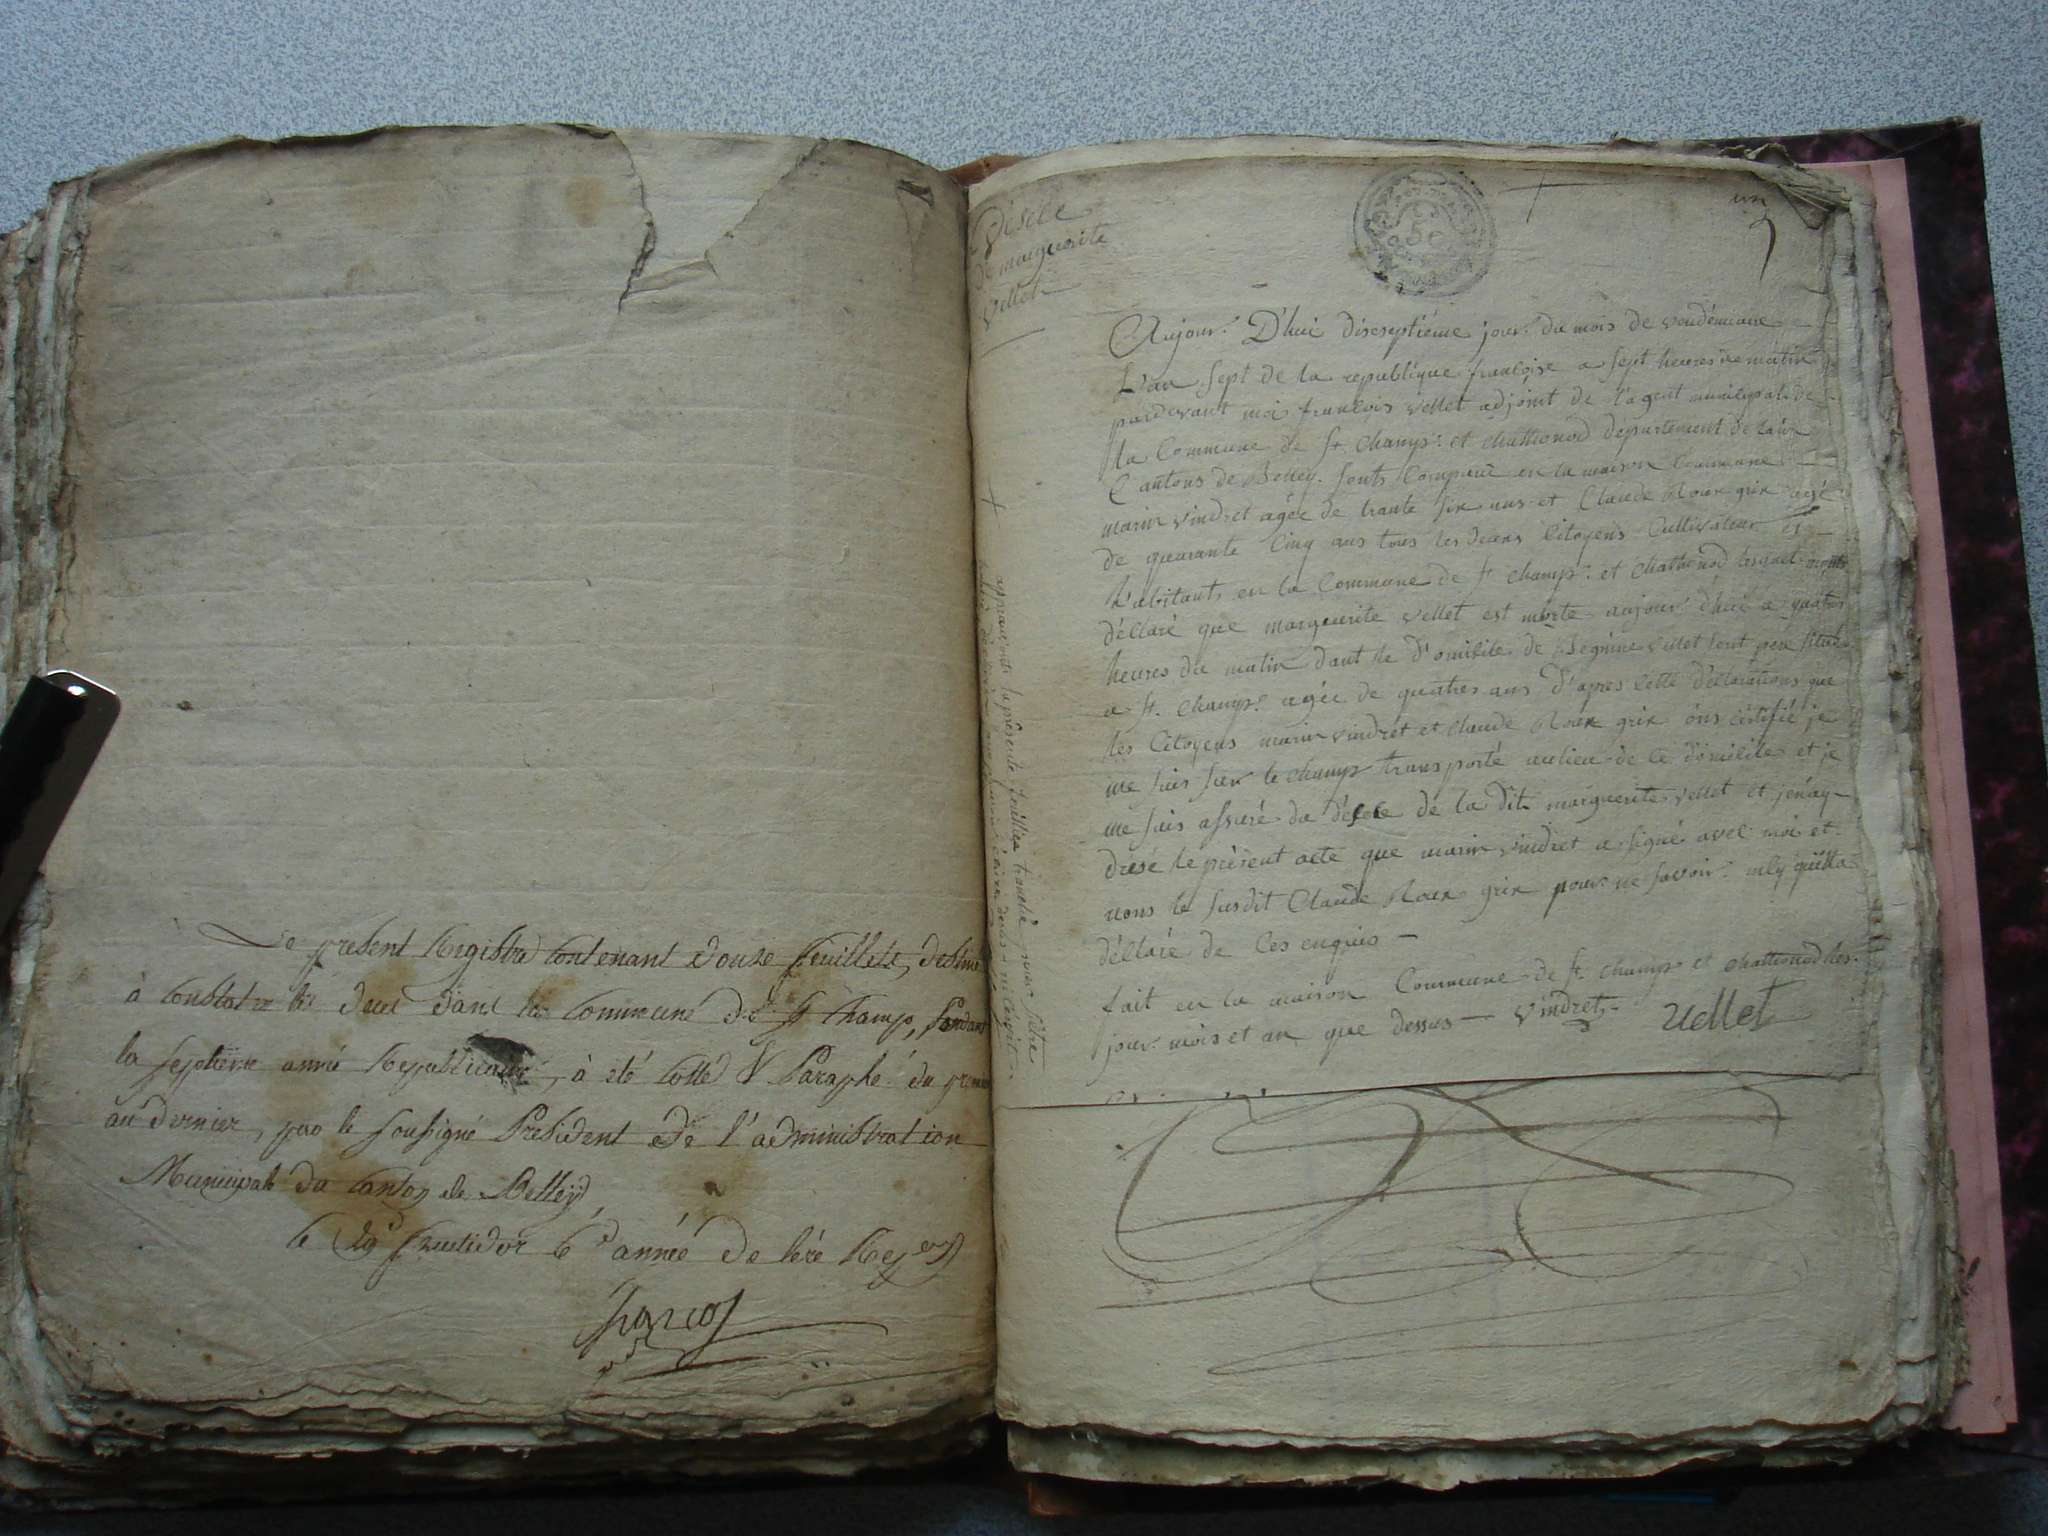 Le present Registre Contenant douze feuillets, destiné
à Constater les deces dans la Commune de St Champ, pendant
la septieme année Republicaine, à été Cotté & Paraphé du premier
au dernier, par le soussigné President de l'administration
Municipale du Canton de Belley,
le 29 fructidor 6e année de l'ére Repaine
pdt
Désele
de marguerite
vellet
un
Aujour. D'hui diseseptiéme jour. du mois de vendémiare
L'an sept de la republique francoise a sept heures de matin
pardevant moi francois vellet adjoint de l'agent municipal de
la Commune de St. Champ. et chathonod département de lain
Cantons de Belley. sonts Comparue en la maison Commune
marin vindret agée de trante six ans et Claude Roux grix agé
de quarante Cinq ans tous les deux Citoyens Cultivateur et
h'abitants en la Commune de St champ. et chathonod lesquel monts
déllaré que marguerite vellet est morte aujour. d'hui a quatres
heures du matin dant le d'omisile de Begnine vellet sont per situé
a St. Champ. agée de quatres ans d'apres cette déllarations que
les Citoyens marin vindret et Claude Roux grix ons certifié je
me suis sur le champ transporté aulieu de ce domisile et je
me suis assuré du désele de la dit marguerite vellet et jenay
dresé le présent acte que marin vindret a signé avec moi et
nons le susdit Claude Roux grix pour ne savoir. inly quilla
déllaré de Ces enquis
fait en la maison Commune de St. champ et chathonod les
jour. mois et an que dessus vindret vellet